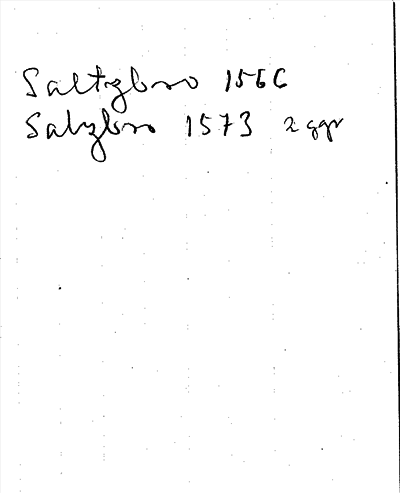 Saltzbro 1566
Salzbro 1573 2 ggr